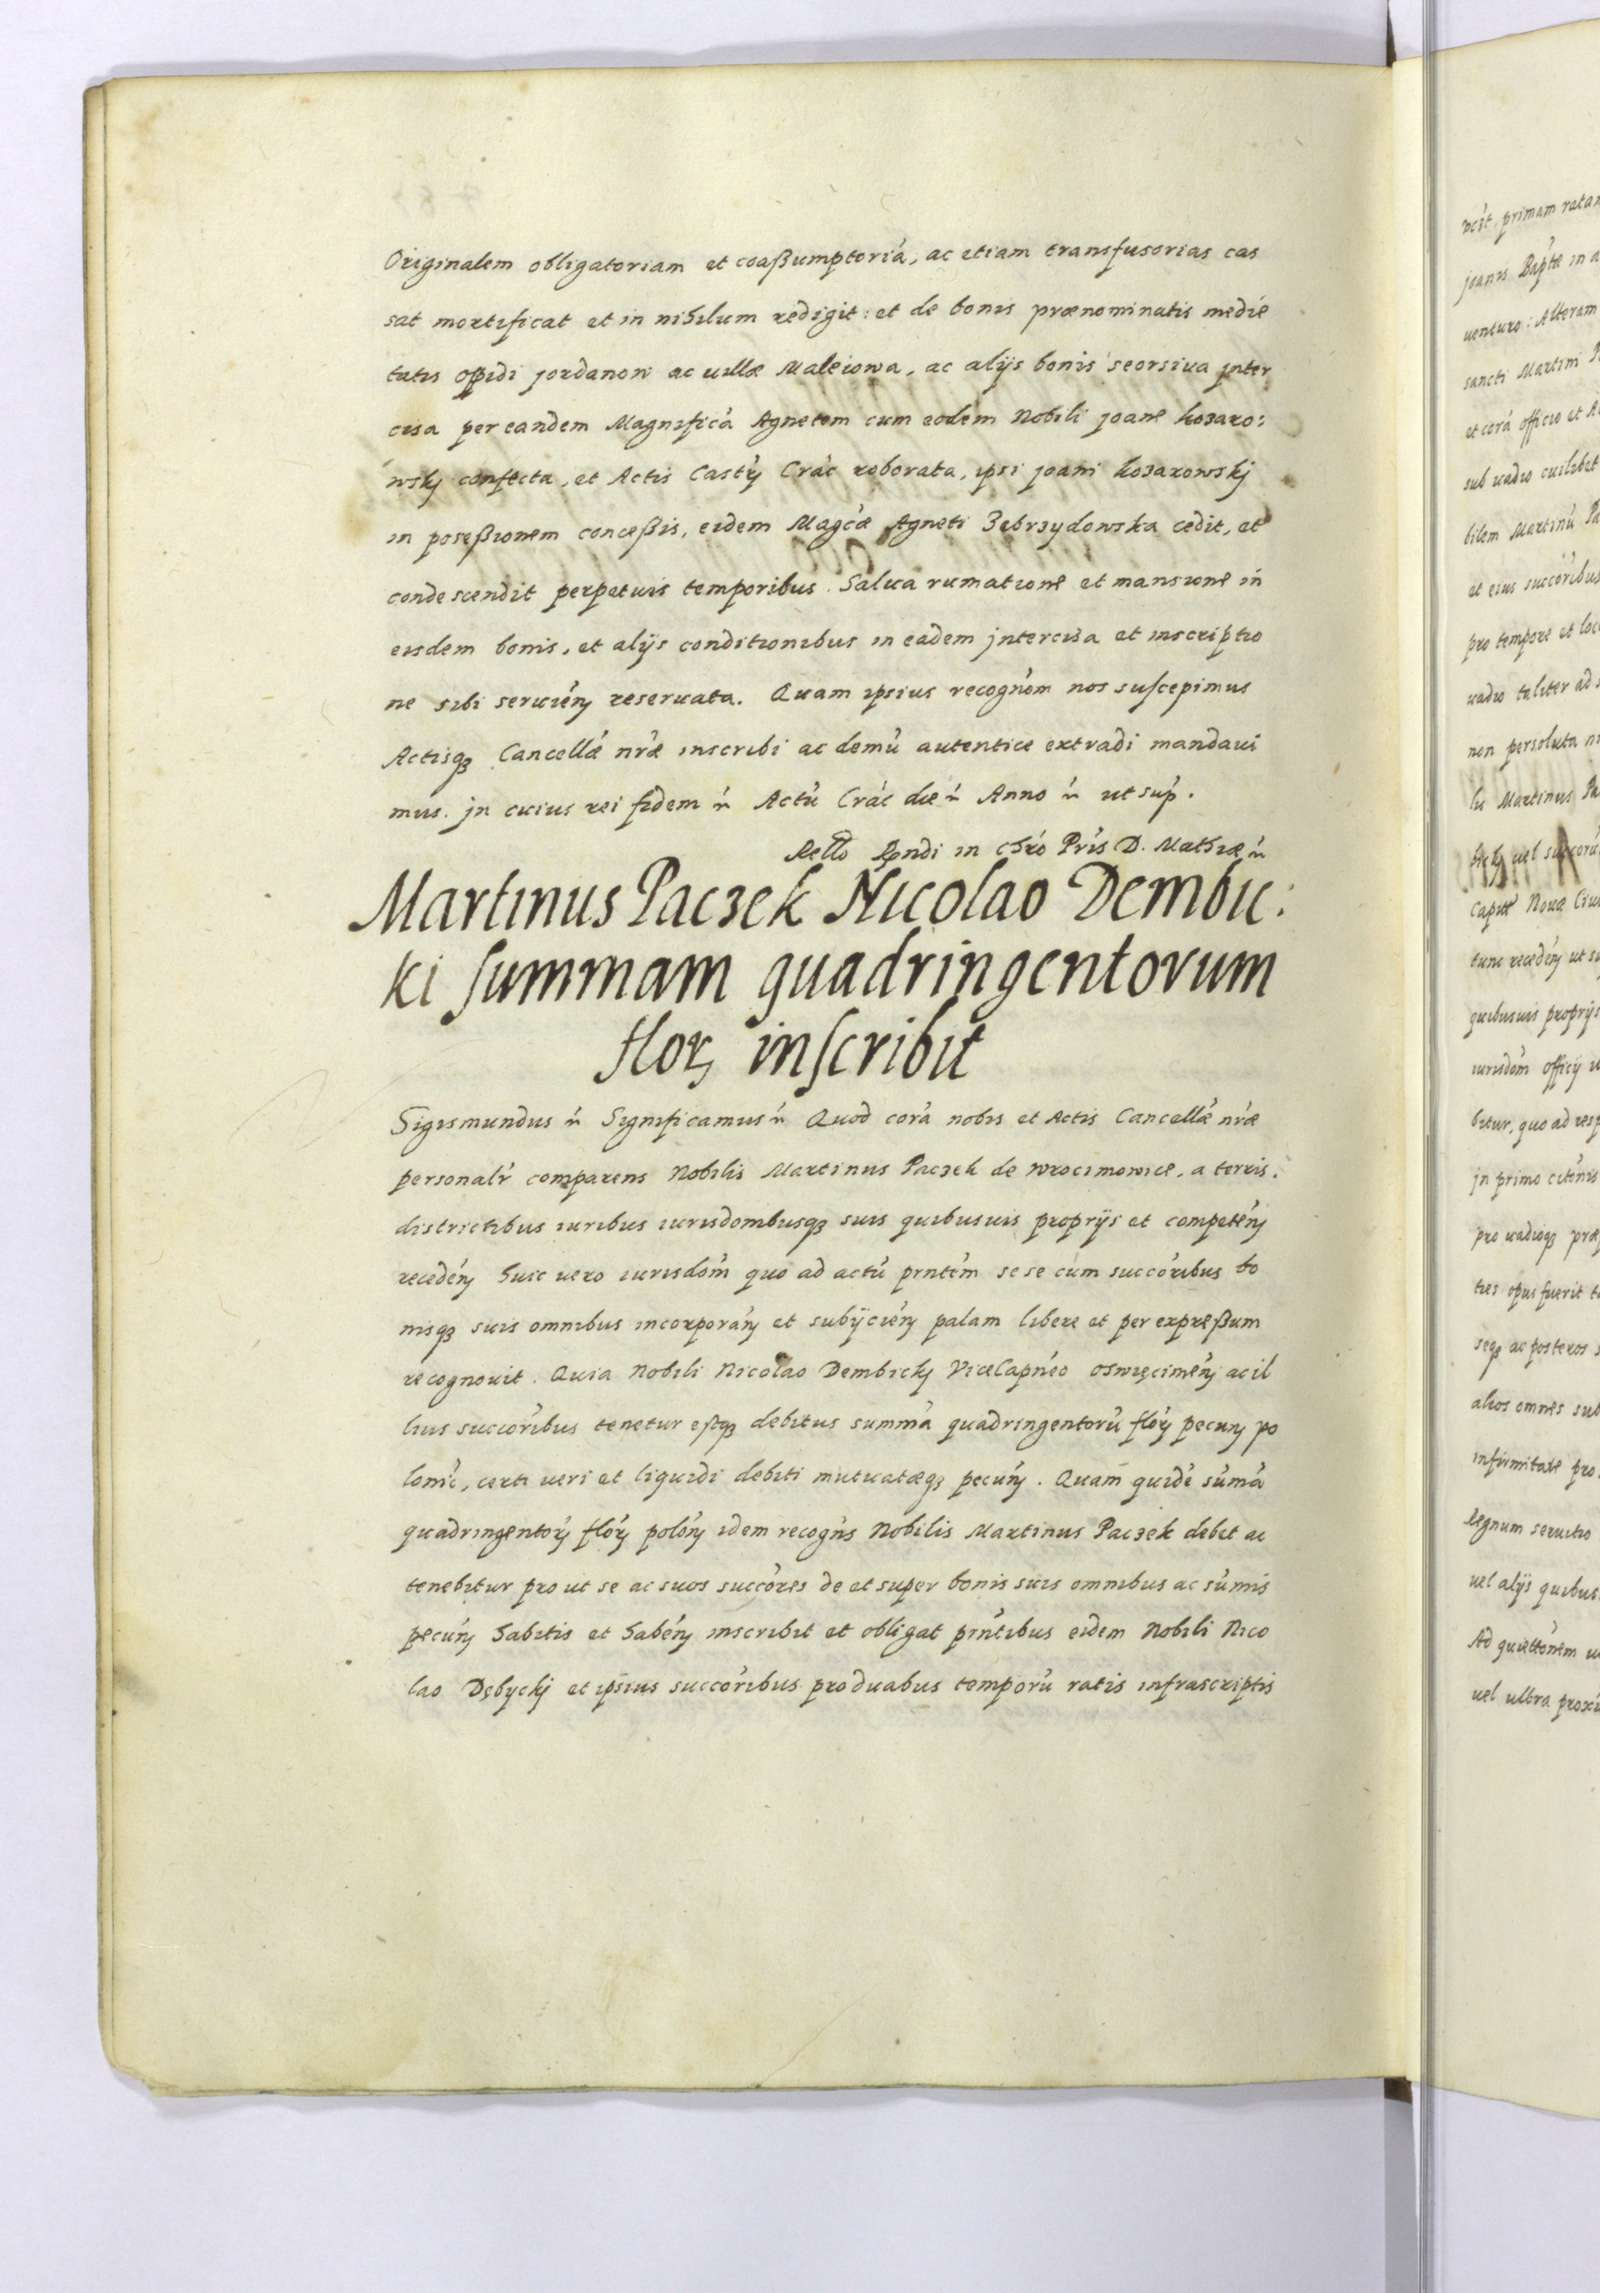 Originalem obligatoriam et coaßumptoriá, ac etiam transfusorias cas
sat mortificat et in nihilum redigit: et de bonis prænominatis medie
tatis opidi Jordanow ac uillæ Maleiowa, ac alijs bonis seorsiua inter
cisa per eandem Magnificá Agnetem cum eodem Nobili Joane kozaro:
wskj confecta, et Actis Castrj Crác roborata, ipsi Joani kozarowskj
in poseßionem conceßis, eidem Magcæ Agneti Zebrzydowska cedit, et
condescendit perpetuis temporibus. Salua rumatione et mansione in
eisdem bonis, et alijs conditionibus in eadem intercisa et inscriptio
ne sibi seruién reseruata. Quam ipsius recognóm nos suscepimus
Actisqȝ Cancellæ nræ inscribi ac demú autentice extradi mandaui
mus. Jn cuius rei fidem ṙ Actú Crác die ṙ Anno ṙ ut sup.
Rello Rndi in Chró Prís D. Mathiæ ṙ
Martinus Paczek Nicolao Dembic:
ki summam quadringentorum
flor inscribit
Sigismundus ṙ Significamus ṙ Quod corá nobis et Actis Cancellæ nræ
personalr comparens Nobilis Martinus Paczek de Wrocimowice, a terris.
districtibus iuribus iurisdombusqȝ suis quibusuis proprijs et competén
recedén huic uero iurisdóm quo ad actú prntém sese cum succóribus bo
nisqȝ suis omnibus incorporán et subijcién palam libere et per expreßum
recognouit. Quia Nobili Nicolao Dembickj ViceCapnéo Oswięcimén ac il
lius succóribus tenetur estqȝ debitus summá quadringentorú flór pecun po
lonic, certi ueri et liquidi debiti mutuatæqȝ pecún. Quam quidé súmá
quadringentor flór polón idem recogns Nobilis Martinus Paczek debet ac
tenebitur pro ut se ac suos succóres de et super bonis suis omnibus ac súmis
pecún habitis et habén inscribit et obligat prntibus eidem Nobili Nico
lao Dębyckj et ipsius succóribus pro duabus temporú ratis infrascriptis
primam ratam
Joanis Baptæ in a
uenturo: Alteram
sancti Martini
et corá officio et A
sub uadio cuilibet
bilem Martinú Pa
et eius succóribus
pro tempore et loc
uadio taliter ad
non persoluta
Martinus Pa
Caput Nouæ Ciui
tunc recedén ut su
quibusuis proprijs
iurisdóm officij u
bitur, quo ad resp
Jn primo citónis
pro uadioqȝ præ
ties opus fuerit
seqȝ ac posteros s
alios omnes sub
infirmitate pro
legnum seruitio
uel alijs quibus
Ad quiettónem
uel ultra proxi